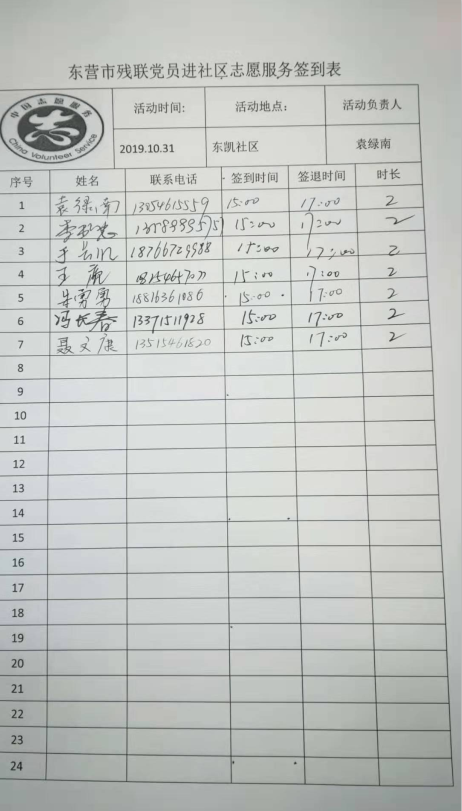 东营市残联党员进社区志愿服务签到表
中国志愿服务
China Volunteer Service
活动时间: 活动地点: 活动负责人
2019.10.31 东凯社区 袁绿南
序号 姓名 联系电话 签到时间 签退时间 时长
1 袁绿南 13854615559 15:00 17:00 2
2 15:00 17:00 2
3 18766729988 15:00 17:00 2
4 王 15:00 17:00 2
5 15:00 17:00 2
6 冯长春 13371511928 15:00 17:00 2
7 聂文康 13515461820 15:00 17:00 2
8
9
10
11
12
13
14
15
16
17
18
19
20
21
22
23
24